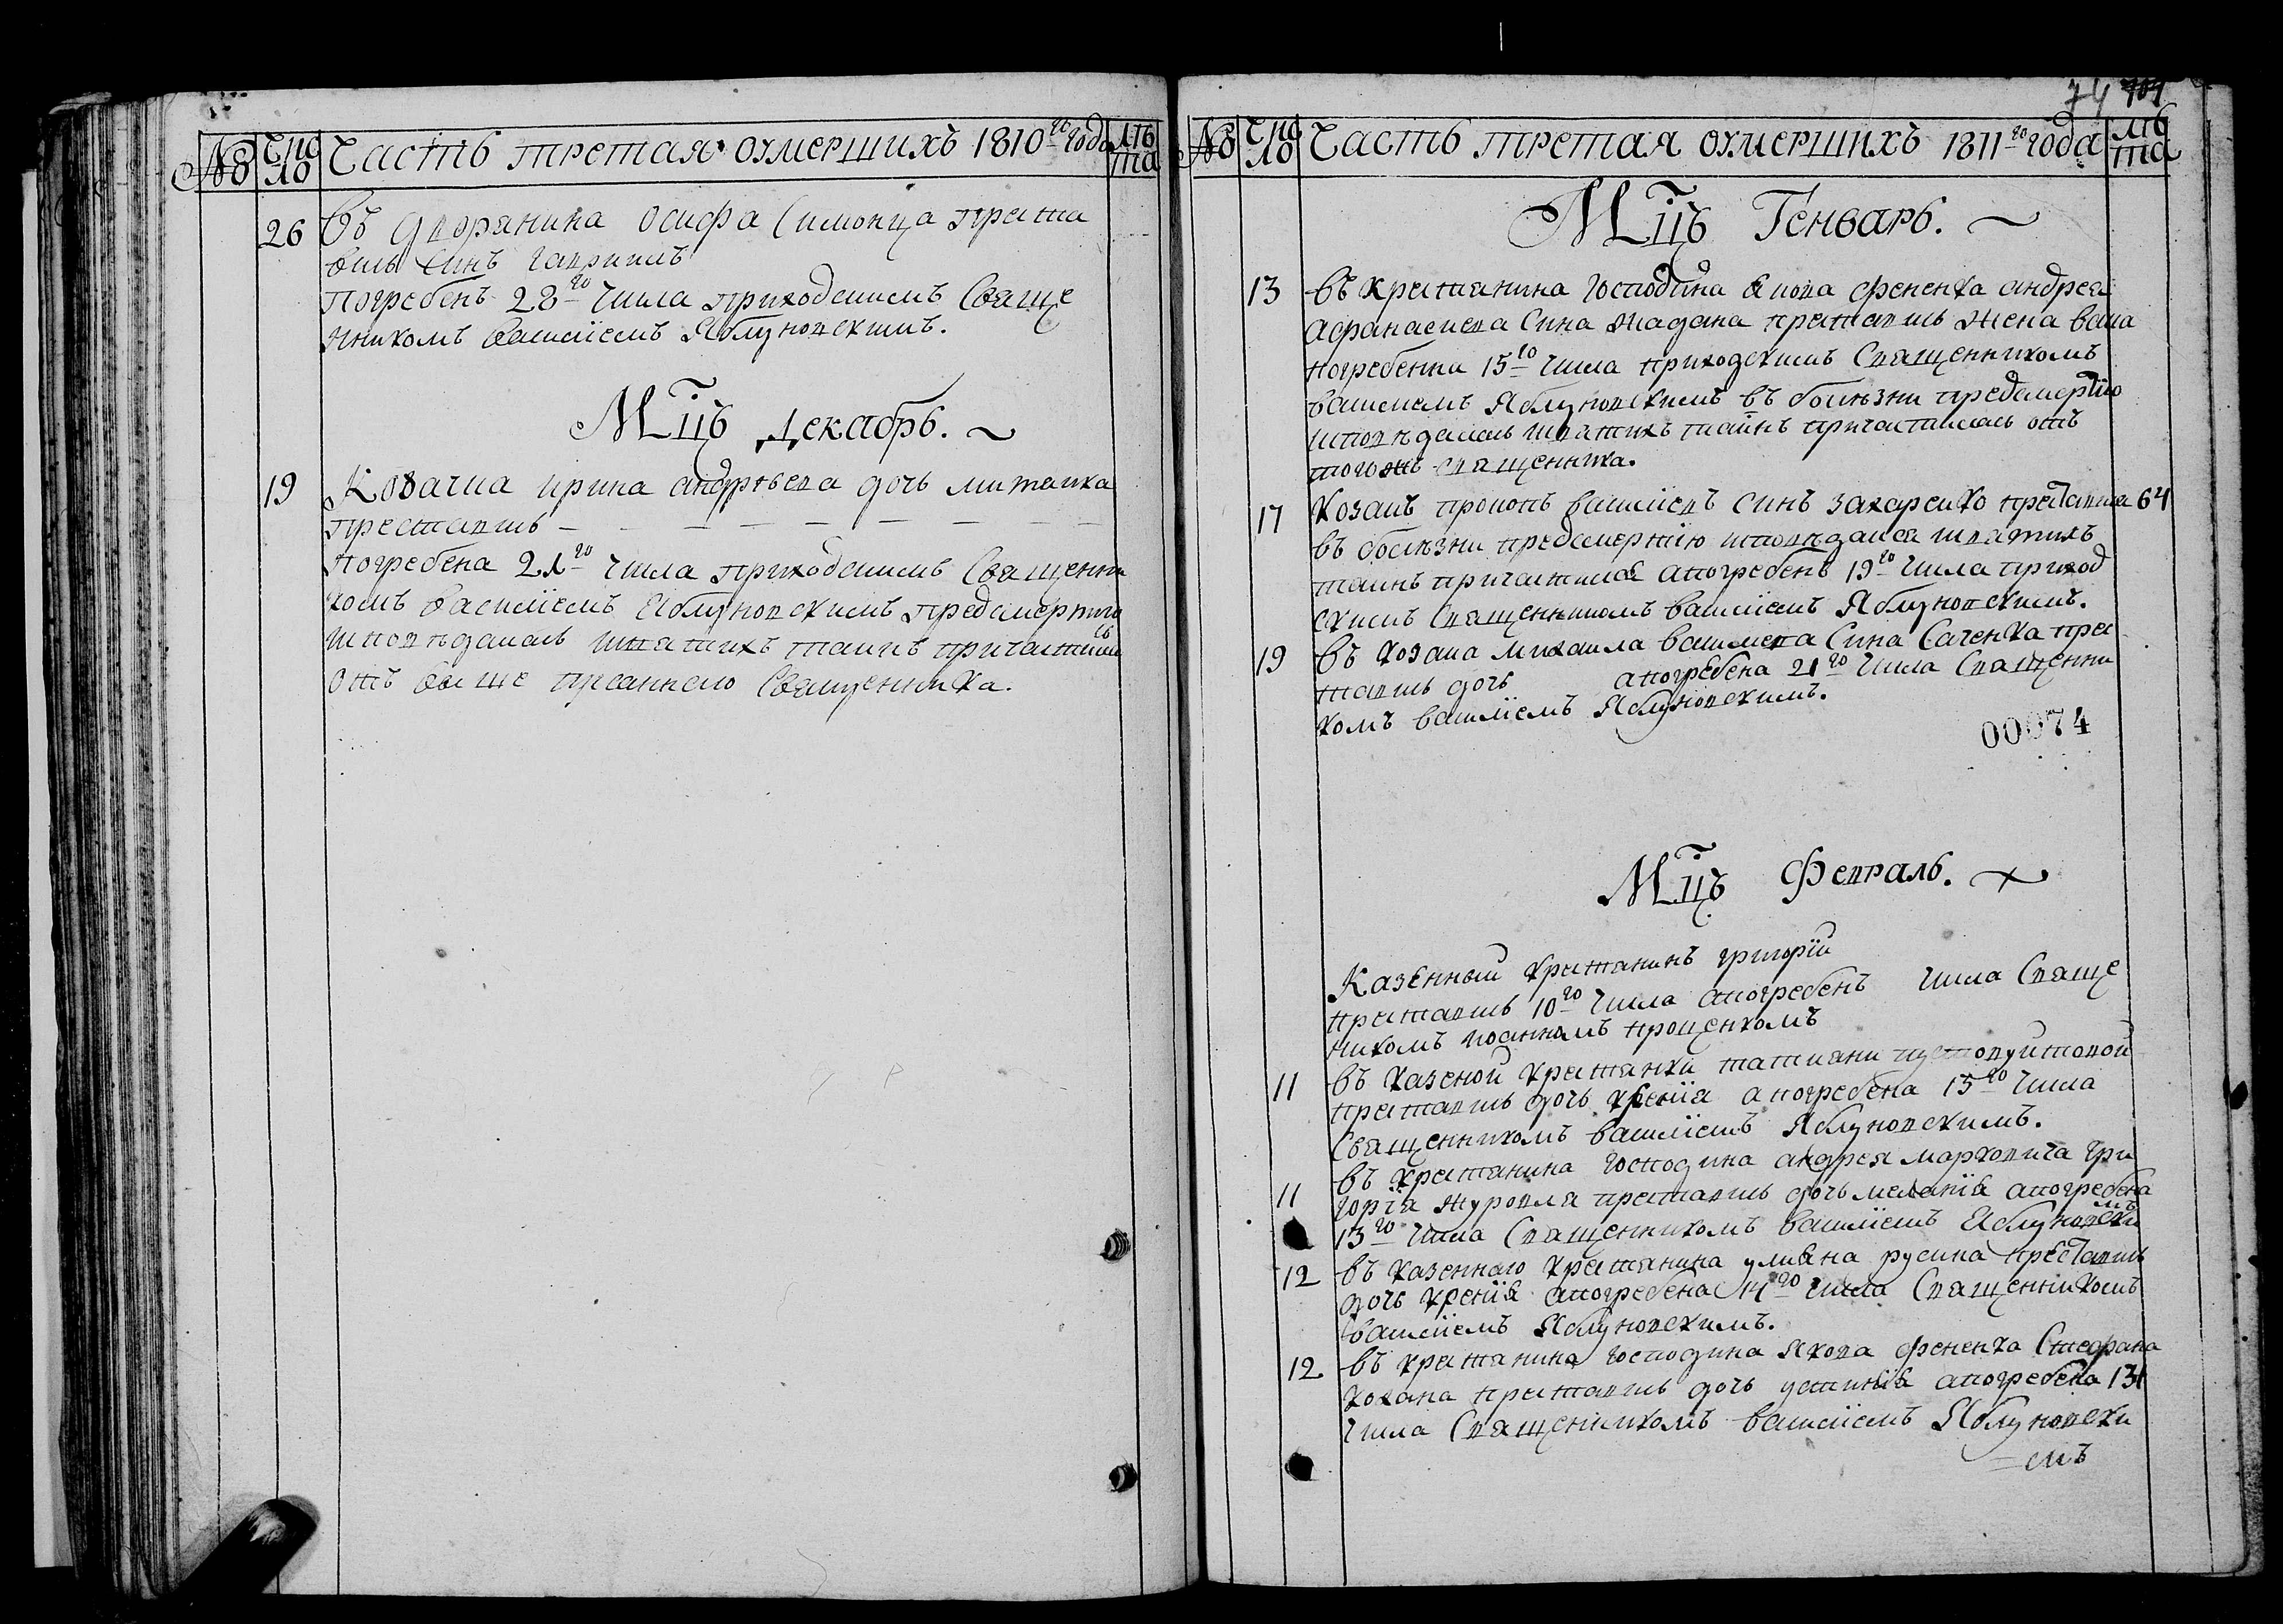 № Чис
ло Часть третая умершихъ 1810го года Лѣ
та
26 Въ дворянина Осифа Симонца преста
вилъ Синъ гавриилъ
погребенъ 28го Числа приходскимъ Свяще
нникомъ василіемъ Яблуновскимъ.
Мцъ Декабрь.
19 Козачка ирина андрѣева дочь
преставись
погребена 21го Числа приходскимъ Священни
комъ василіемъ Яблуновскимъ предсмертію
исповѣдалась ісвятихъ таинъ причастилась
отъ више писанного Священника.
74
№ Чис
ло Часть третая умершихъ 1811го года Лѣ
та
Мцъ Генварь.
13 въ крестянина Господина Якова фененка андрея
афанасиева Сина жадана преставись жена васа
погребенна 15го Числа приходскимъ Священникомъ
василіемъ Яблуновскимъ въ болѣзни предсмертію
исповѣдалась ісвятихъ таинъ причастилась отъ
тогожъ священника.
17 Козакъ прокопъ василіевъ синъ захаренко преставися 64
въ болѣзни предсмертію исповѣдался ісвятихъ
таинъ причастился апогребенъ 19го Числа приход
скимъ Священникомъ василіемъ Яблуновскимъ.
19 въ козака михаила василиева Сина Саченка пре
ставись дочь апогребена 21го Числа Священни
комъ василіемъ Яблуновскимъ.
00074
Мцъ Февраль.
Казенный крестянинъ григорій
преставись 10го Числа апогребенъ Числа Свяще
никомъ иоанномъ проценкомъ
11 въ казеной крестянки татияни
преставись дочь ксенія апогребена 13го Числа
Священникомъ василіемъ Яблуновскимъ.
11 въ крестянина Господина андрея марковича гри
горія журовля преставись дочь меланія апогребена
13го Числа Священникомъ василіемъ Яблуновски
мъ
12 въ казенного крестянина улияна русина преставись
дочь ксенія апогребена 14го числа Священникомъ
василіемъ Яблуновскимъ.
12 въ крестянина господина Якова фененка Стефана
кохана преставись дочь устинія апогребена 13
Числа Священникомъ василіемъ Яблуновски
мъ